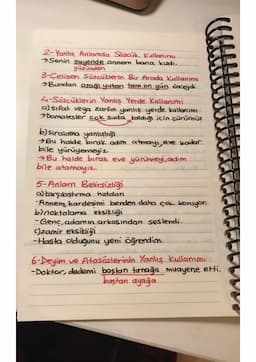 2-Yanlış Anlamda Sözcük Kullanımı
→Senin sayende annem bana kızdı.
yüzünden
3-Çelişen Sözcüklerin Bir Arada Kullanımı
→Bundan aşağı yukarı tam on gün önceydi.
4-Sözcüklerin Yanlış Yerde Kullanımı
a)sıfat veya zarfın yanlış yerde kullanımı
→Domatesler çok suda kaldığı için çürümüş
b)sıralama yanlışlığı
→Bu halde bırak adım atmayı, eve kadar
bile yürüyemeyiz.
→Bu halde bırak eve yürümeyi, adım
bile atamayız.
5-Anlam Belirsizliği
a)karşılaştırma hataları
-Annem, kardeşimi benden daha çok koruyor.
b)noktalama eksikliği
-Genç, adamın arkasından seslendi.
c)zamir eksikliği
-Hasta olduğunu yeni öğrendim.
6-Deyim ve Atasözlerinin Yanlış Kullanımı
-Doktor, dedemi baştan tırnağa muayene etti.
baştan ayağa